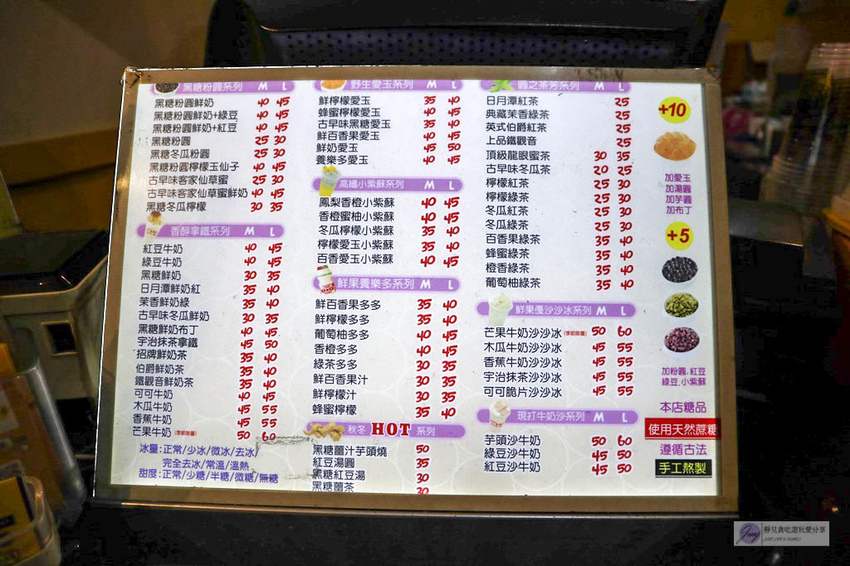 黑糖粉圓系列 M L
黑糖粉圓鮮奶 40 45
黑糖粉圓鮮奶+綠豆 40 45
黑糖粉圓鮮奶+紅豆 40 45
黑糖粉圓 25 30
黑糖冬瓜粉圓 25 30
黑糖粉圓檸檬玉仙子 40 45
古早味客家仙草蜜 25 30
古早味客家仙草蜜鮮奶 40 45
黑糖冬瓜檸檬 30 35
香醇拿鐵系列 M L
紅豆牛奶 40 45
綠豆牛奶 40 45
黑糖鮮奶 30 35
日月潭鮮奶紅 35 40
茉香鮮奶綠 35 40
古早味冬瓜鮮奶 30 35
黑糖鮮奶布丁 40 45
宇治抹茶拿鐵 45 50
招牌鮮奶茶 35 40
伯爵鮮奶茶 35 40
鐵觀音鮮奶茶 35 40
可可牛奶 40 45
木瓜牛奶 45 55
香蕉牛奶 45 55
芒果牛奶(季節限量) 50 60
冰量:正常/少冰/微冰/去冰/
完全去冰/常溫/溫熱
甜度:正常/少糖/半糖/微糖/無糖
野生愛玉系列 M L
鮮檸檬愛玉 35 40
蜂蜜檸檬愛玉 40 45
古早味黑糖愛玉 35 40
鮮百香果愛玉 40 45
鮮奶愛玉 45 50
養樂多愛玉 40 45
高纖小紫蘇系列 M L
鳳梨香橙小紫蘇 40 45
香橙蜜柚小紫蘇 40 45
冬瓜檸檬小紫蘇 35 40
檸檬愛玉小紫蘇 40 45
百香愛玉小紫蘇 40 45
鮮果養樂多系列 M L
鮮百香果多多 35 40
鮮檸檬多多 35 40
葡萄柚多多 40 45
香橙多多 40 45
綠茶多多 30 35
鮮百香果汁 30 35
鮮檸檬汁 30 35
蜂蜜檸檬 35 40
秋冬 HOT 系列
黑糖薑汁芋頭燒 50
紅豆湯圓 35
黑糖紅豆湯 30
黑糖薑茶 20
圓之茶芳系列 M L
日月潭紅茶 25
典藏茉香綠茶 25
英式伯爵紅茶 25
上品鐵觀音 25
頂級龍眼蜜茶 30 35
古早味冬瓜茶 20 25
檸檬紅茶 30 35
檸檬綠茶 30 35
冬瓜紅茶 30 35
冬瓜綠茶 30 35
百香果綠茶 35 40
蜂蜜綠茶 35 40
橙香綠茶 35 40
葡萄柚綠茶 35 40
鮮果優沙沙冰系列 M L
芒果牛奶沙沙冰(季節限量) 50 60
木瓜牛奶沙沙冰 45 55
香蕉牛奶沙沙冰 45 55
宇治抹茶沙沙冰 45 55
可可脆片沙沙冰 45 55
現打牛奶沙系列 M L
芋頭沙牛奶 50 60
綠豆沙牛奶 45 50
紅豆沙牛奶 45 50
+10
加愛玉
加湯圓
加芋圓
加布丁
+5
加粉圓,紅豆
綠豆,小紫蘇
本店糖品
使用天然蔗糖
遵循古法
手工熬製
靜兒貪吃遊玩愛分享